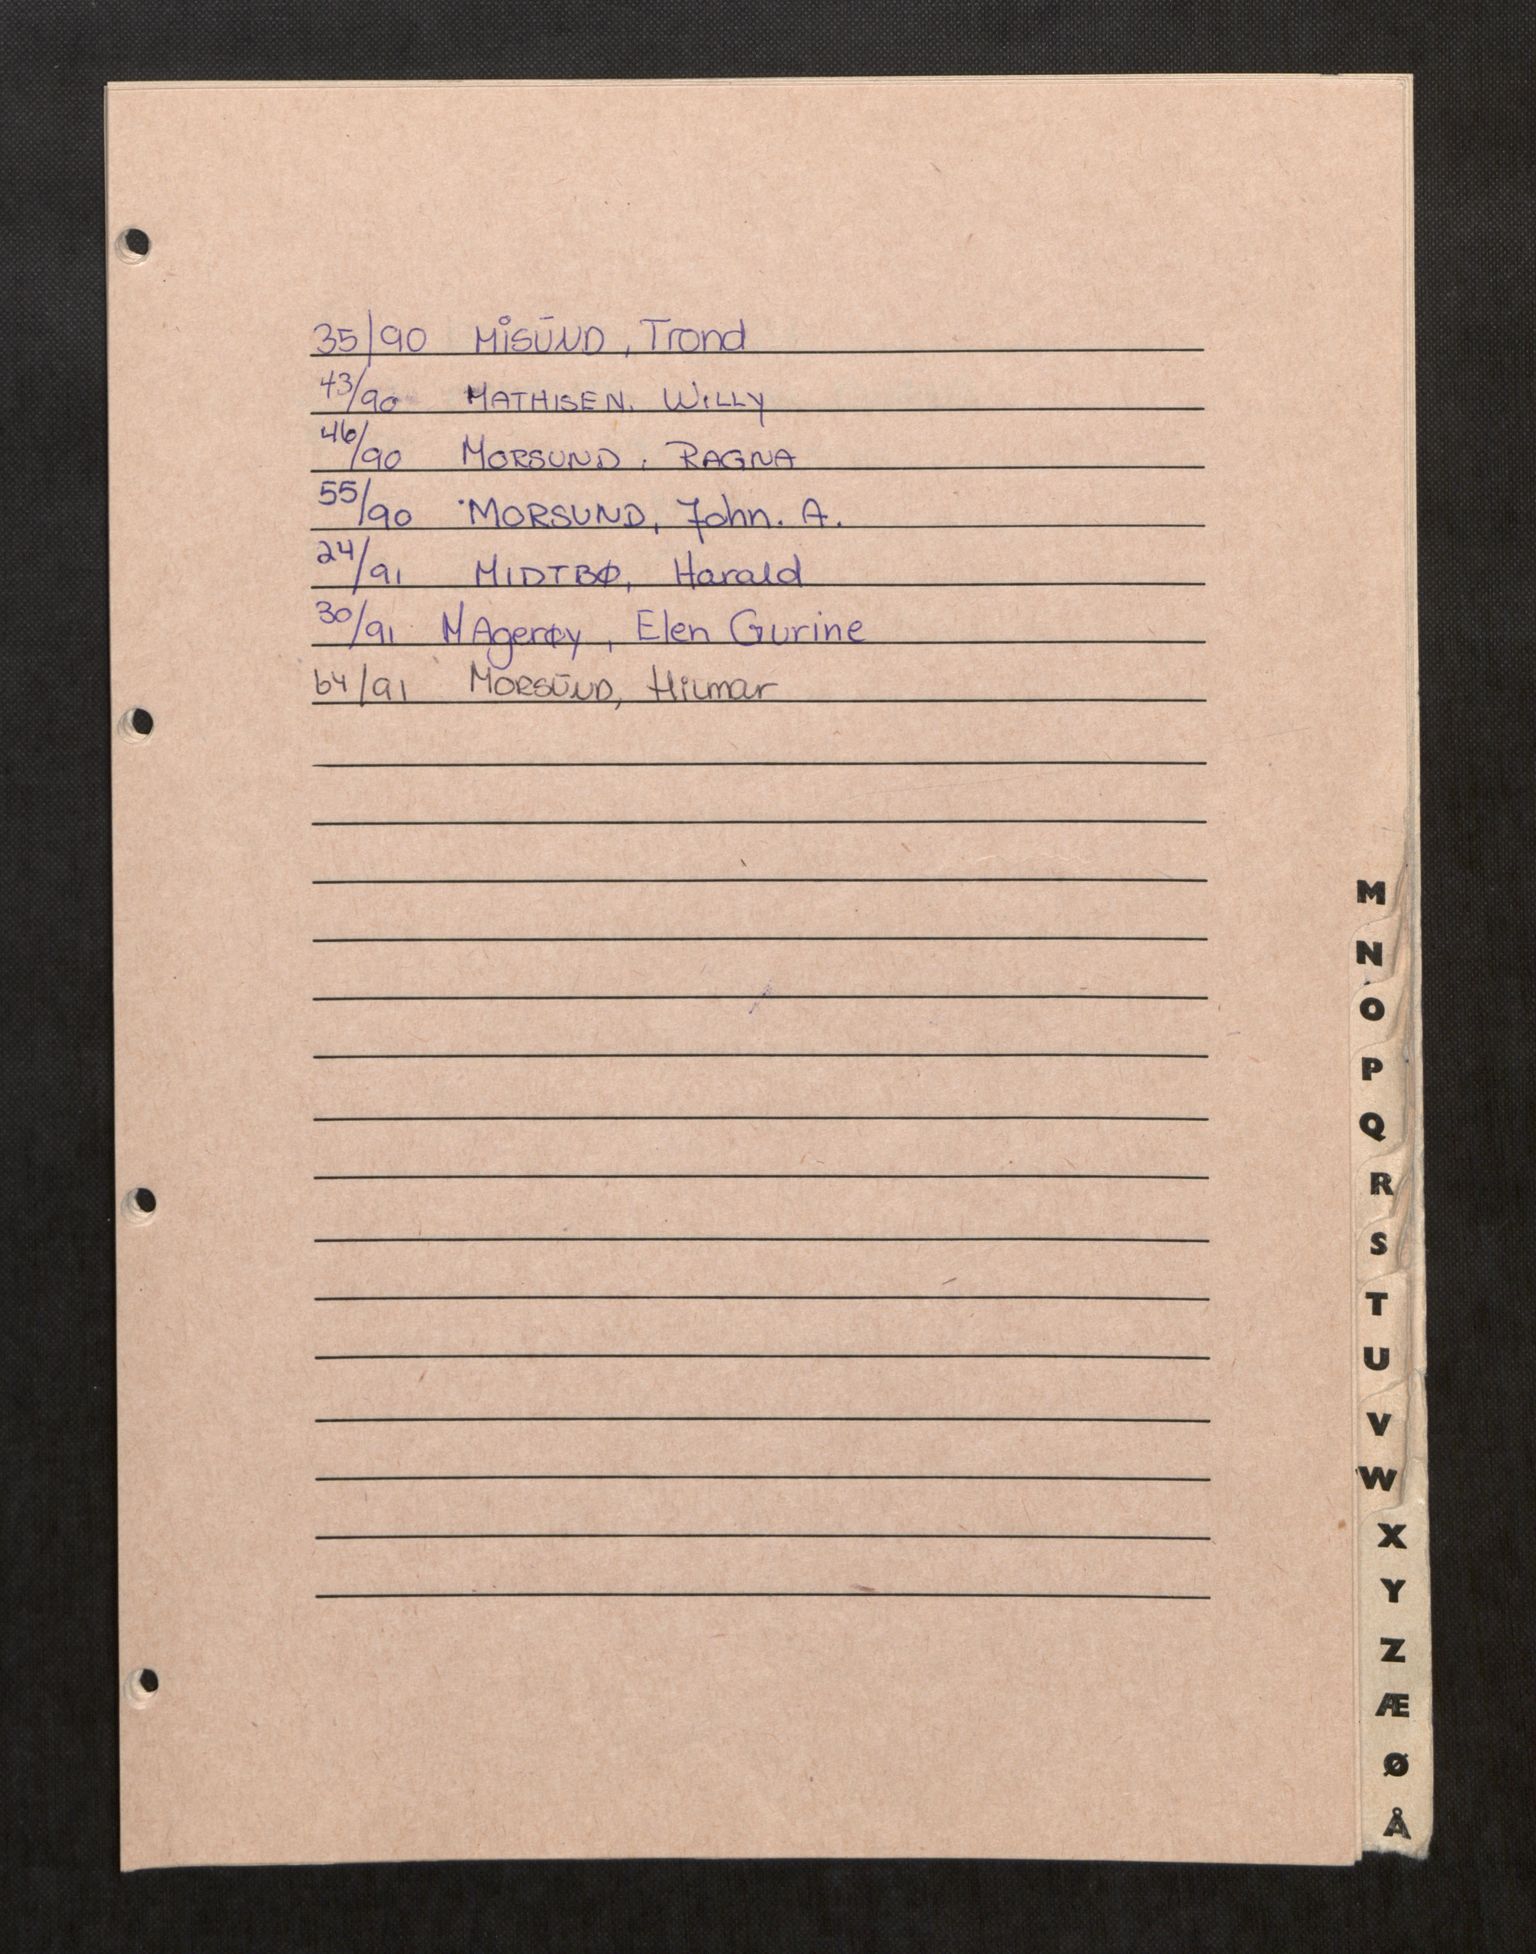 35/90 MISŪND, Trond
43/90 MATHISEN. WILLY
46/90 MORSUND. RAGNA
55/90 MORSUND, John. A.
24/91 MIDTBØ, Harald
30/91 MAgerøy, Elen Gurine
64/91 MORSŪND, Hilmar
M
N
O
P
Q
R
S
T
U
V
W
X
Y
Z
Æ
Ø
Å